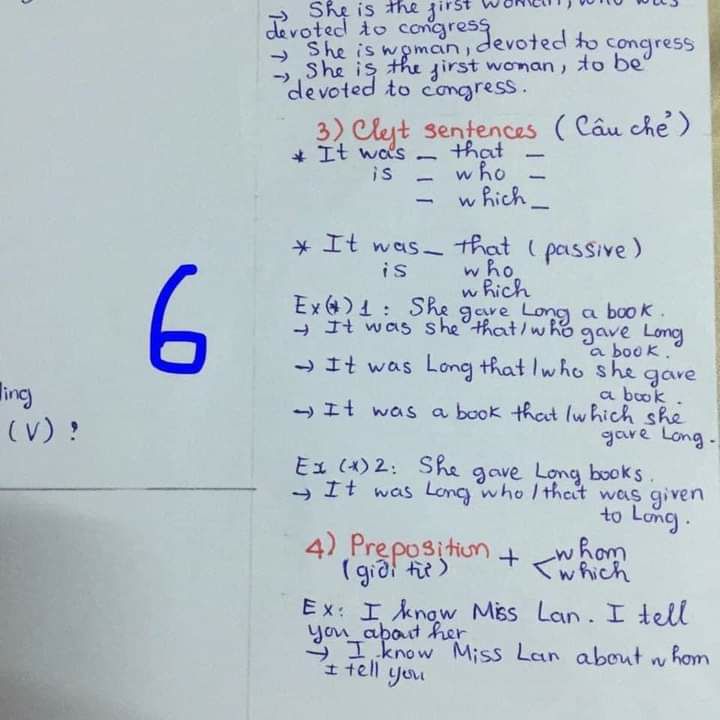 → She is the first woman, who was
devoted to congress
→ She is woman, devoted to congress
→ She is the first woman, to be
devoted to congress.
3) Cleft sentences (Câu chẻ)
* It was _ that _
is _ who _
_ which _
* It was _ that (passive)
is who
which
Ex(*)1: She gave Long a book.
→ It was she that/who gave Long
a book.
→ It was Long that/who she gave
a book.
→ It was a book that/which she
gave Long.
6
ling
(V) ?
Ex (*)2: She gave Long books.
→ It was Long who/that was given
to Long.
4) Preposition + < whom
(giới từ) which
Ex: I know Miss Lan. I tell
you about her
→ I know Miss Lan about whom
I tell you